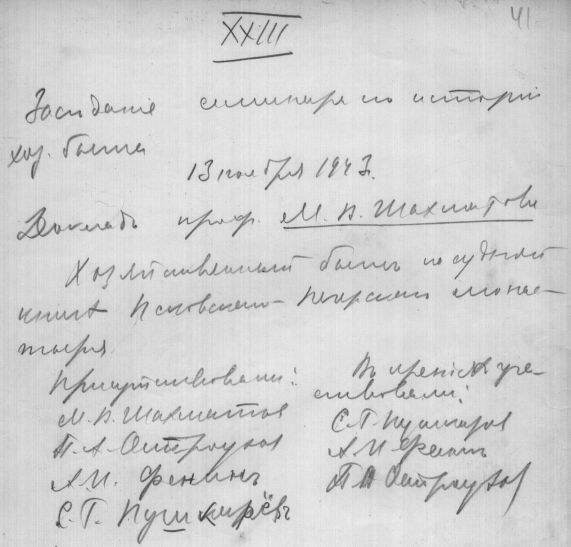 41
XXIII
Заседанiе семинара по исторiи
хоз. быта
13 ноября 1943.
Докладъ проф. М. В. Шахматова
Хозяйственный бытъ по судной
книге Псковско-Печерскаго монас-
тыря.
Присутствовали:
М. В. Шахматов
П. А. Остроухов
А. И. Фенинъ
С. Г. Пушкарёвъ
Въ пренiях уча-
ствовали:
С. Г. Пушкарев
А И Фенинъ
П А Остроухов